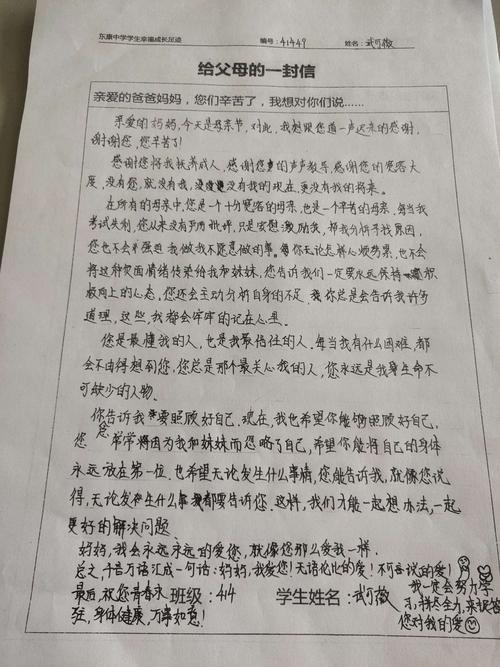 东康中学学生幸福成长足迹 编号：41449 姓名：武可薇
给父母的一封信
亲爱的爸爸妈妈，您们辛苦了，我想对你们说……
亲爱的妈妈，今天是母亲节，对此，我想跟您道一声迟来的感谢，
谢谢您，您辛苦了！
感谢您将我抚养成人，感谢您的声声教导，感谢您的宽容大
度，没有您，就没有我，没有我的现在，更没有我的将来。
在所有的母亲中，您是一个十分宽容的母亲，也是一个辛苦的母亲，每当我
考试失利，您从来没有开始批评，只是安慰激励我，帮我分析寻找原因，
您也不会强迫我做我不愿意做的事。您无论怎样心烦劳累，也不会
将这种负面情绪传染给我和妹妹，您告诉我们一定要永远保持积
极向上的心态，您还会主动分析自身的不足，您总是会告诉我许多
道理，这些，我都会牢牢的记在心里。
您是最懂我的人，也是我最信任的人。每当我有什么困难，都
会不由得想到您，您总是那个最关心我的人，您永远是我生命不
可缺少的人物。
你告诉我要照顾好自己，现在，我也希望你能够照顾好自己，
您总常常将因为我和妹妹而忽略了自己，希望你能将自己的身体
永远放在第一位，也希望无论发生什么事情，您能告诉我，就像您说
得，无论发生什么都要告诉您，这样，我们才能一起想办法，一起
更好的解决问题。
妈妈，我会永远永远的爱您，就像您那么爱我一样。
总之，千言万语汇成一句话：妈妈，我爱您！无语伦比的爱！不可言议的爱！
最后，祝您青春永 班级：414 学生姓名：武可薇
驻，身体健康，万事如意！
我一定会努力学
习，拼尽全力，来报答
您对我的爱